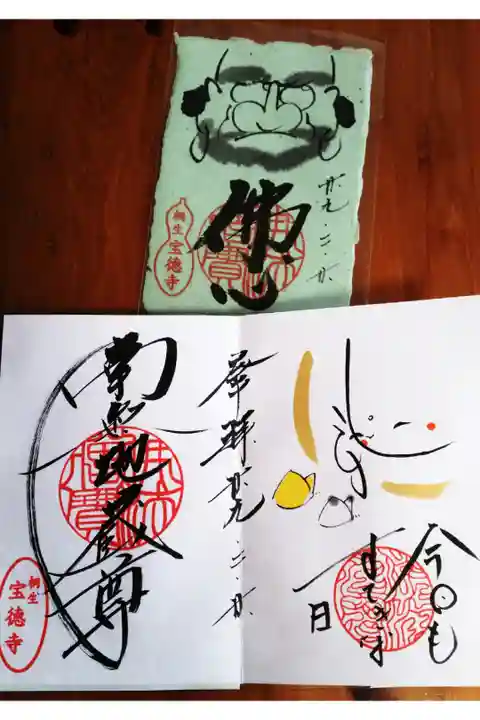 廿九.二.廿
佛心
桐生
宝徳寺
今日も
すてきな
一日
奉拝 廿九.二.廿
南無地蔵尊
桐生
宝徳寺